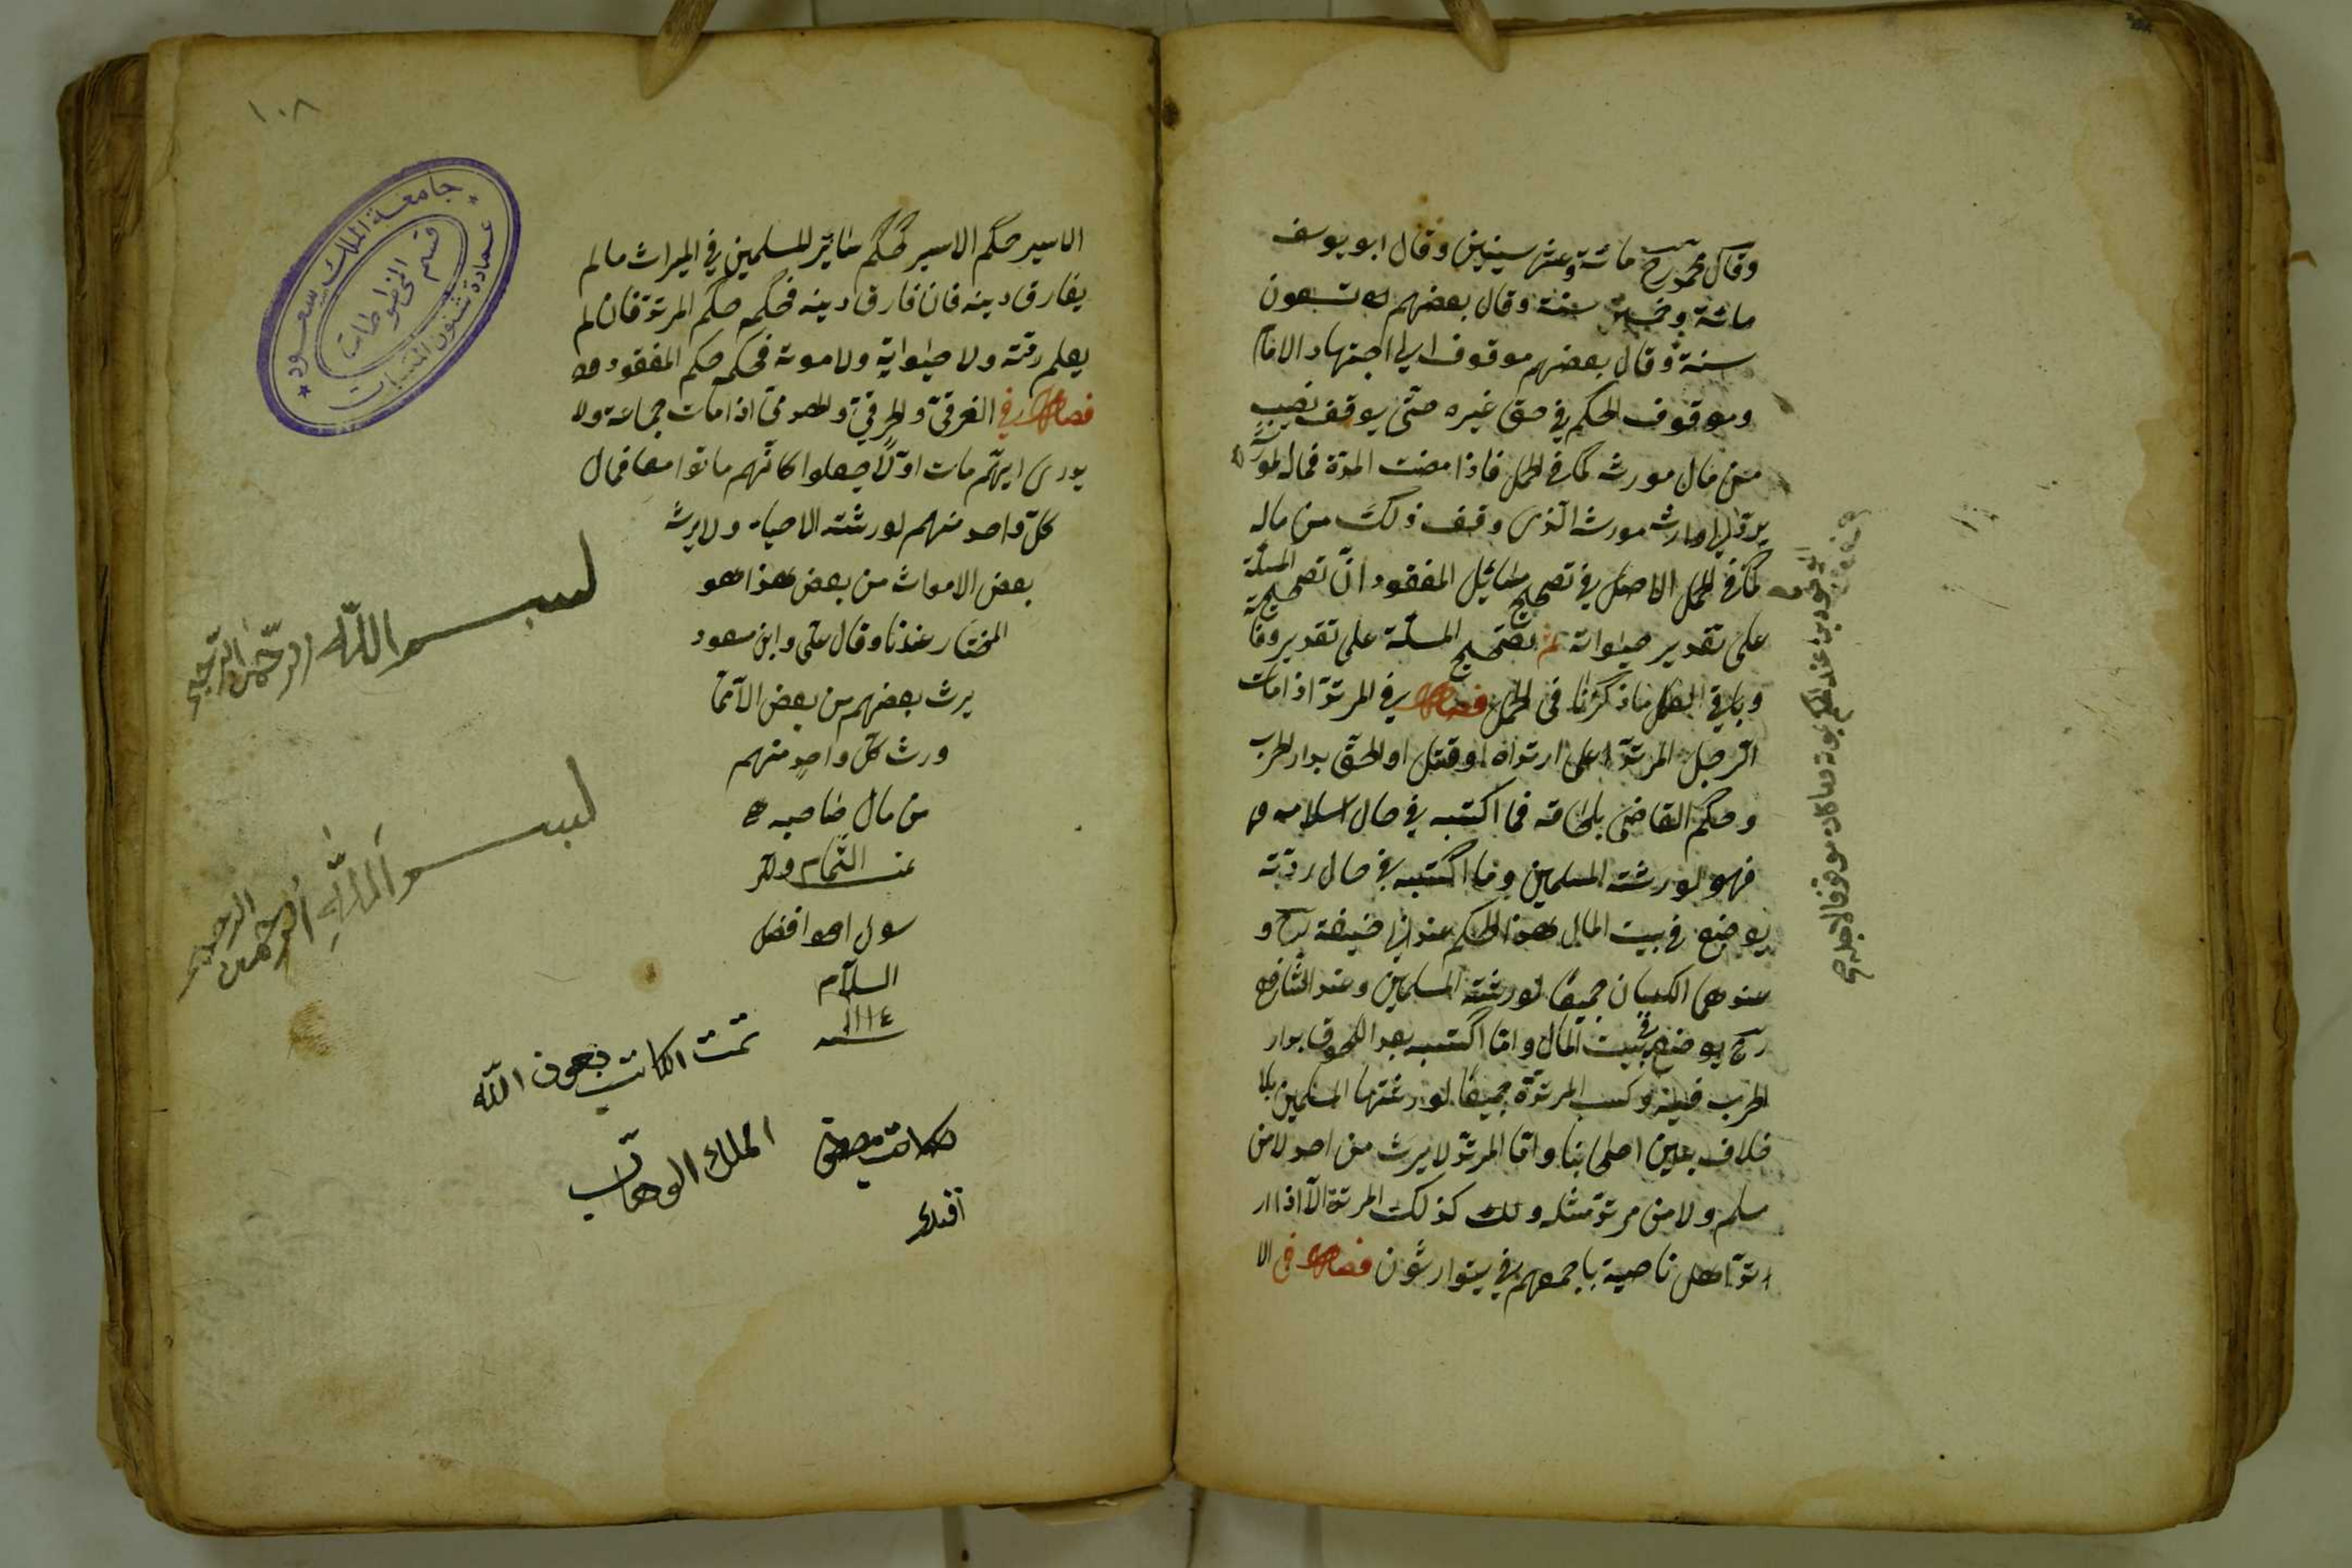 وقال محمد رح مائة وعشر سنينين وقال ابو يوسف
مائة وخمس سنة وقال بعضهم تسعون
سنة وقال بعضهم موقوف الى اجتهاد الامام
وموقوف الحكم فى حق غيره حتى يوقف نصيبه
من مال مورثه كما فى الحمل فاذا مضت المدة فماله لورثته
يرد الى وارث مورثه الذى وقف ذلك من ماله
كما فى الحمل الاصل فى تصحيح مسائل المفقود ان تصحح المسئلة
على تقدير حيواته ثم تصحيح المسئلة على تقدير وفاته
وباقى العمل ما ذكرنا فى الحمل فصل فى المرتد اذا مات
الرجل المرتد على ارتداه او قتل او الحق بدار الحرب
وحكم القاضى بلحاقه فما اكتسبه فى حال اسلامه
فهو لورثته المسلمين وما اكتسبه فى حال ردته
يوضع فى بيت المال هذا الحكم عند ابى حنيفة رح و
عندهما الكسبان جميعا لورثته المسلمين وعند الشافعى
رح يوضع فى بيت المال واما اكتسبه بعد اللحوق بدار
الحرب فيئ وكسب المرتدة جميعا لورثتها المسلمين بلا
خلاف بين اصحابنا واما المرتد لا يرث من احد لا من
مسلم ولا من مرتد مثله وكذلك المرتدة الا اذا ار
ارتد اهل ناحية باجمعهم فى يتوارثون فصل فى الا
١٠٨
جامعة الملك سعود
عمادة شئون المكتبات
قسم المخطوطات
الاسير حكم الاسير كحكم سائر المسلمين فى الميراث مالم
يفارق دينه فان فارق دينه فحكمه حكم المرتد فان لم
يعلم ردته ولا حيواته ولا موته فحكمه حكم المفقود
فصل فى الغرقى والحرقى والهدمى اذا مات جماعة ولا
يدرى ايهم مات اولا جعلوا كانهم ماتوا معا فمال
كل واحد منهم لورثته الاحياء ولا يرث
بعض الاموات من بعض هذا هو
المختار عندنا وقال على وابن مسعود
يرث بعضهم من بعض الا مما
ورث كل واحد منهم
من مال صاحبه
السلام
سنة ١١١٤
بسم الله الرحمن الرحيم
بسم الله الرحمن الرحيم
تمت الكاتب بعون الله
الملك الوهاب
افندى